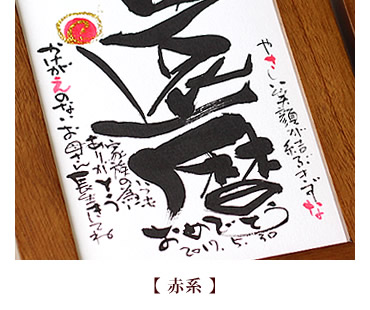 還暦
おめでとう
2017.5.30
やさしい笑顔が結ぶきずな
いつも
家族の為
ありがとう
かけがえのないお母さん長生きしてね
【 赤系 】